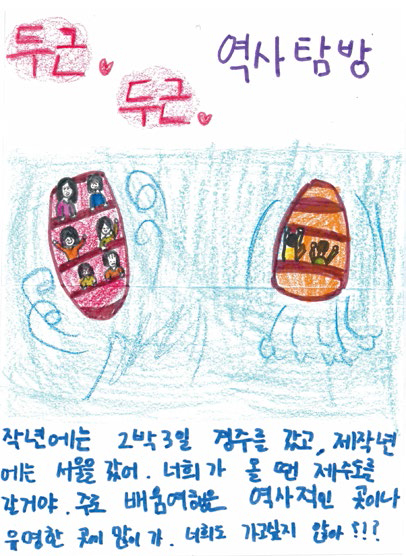 두근
역사탐방
두근
작년에는 2박3일 경주를 갔고, 제작년
에는 서울을 갔어. 너희가 올 땐 제주도를
갈거야. 주로 배움여행은 역사적인 곳이나
유명한 곳이 많이 가. 너희도 가고싶지 않아?!?